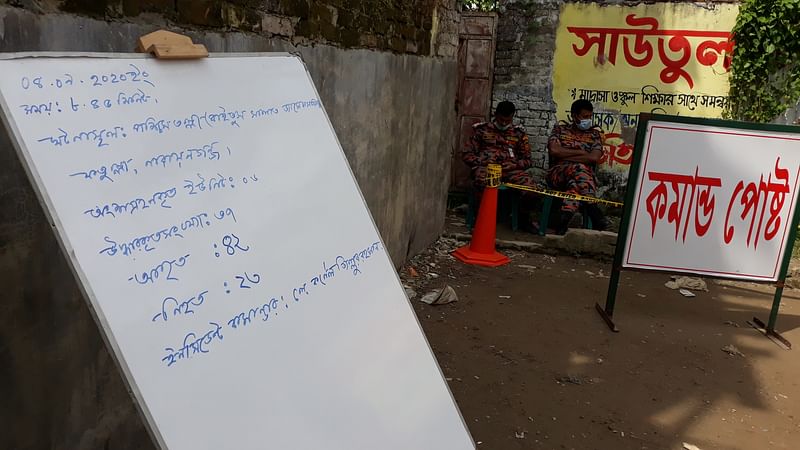 ০৪.০৯.২০২০ইং
সময়: ৮.৪৫ মিনিট.
ঘটনাস্থল: পশ্চিম তল্লা বাইতুস সালাত জামে মসজিদ
ফতুল্লা, নারায়নগঞ্জ।
অংশগ্রহনকৃত ইউনিট: ০৬
উদ্ধারকৃত সংখ্যা: ৩৭
আহত : ৪২
নিহত : ২৩
ইনসিডেন্ট কমান্ডার: লে. কর্নেল জিল্লুর রহমান
সাউতুল
মাদ্রাসা ওস্কুল শিক্ষার সাথে সমন্বয়
কমান্ড পোষ্ট